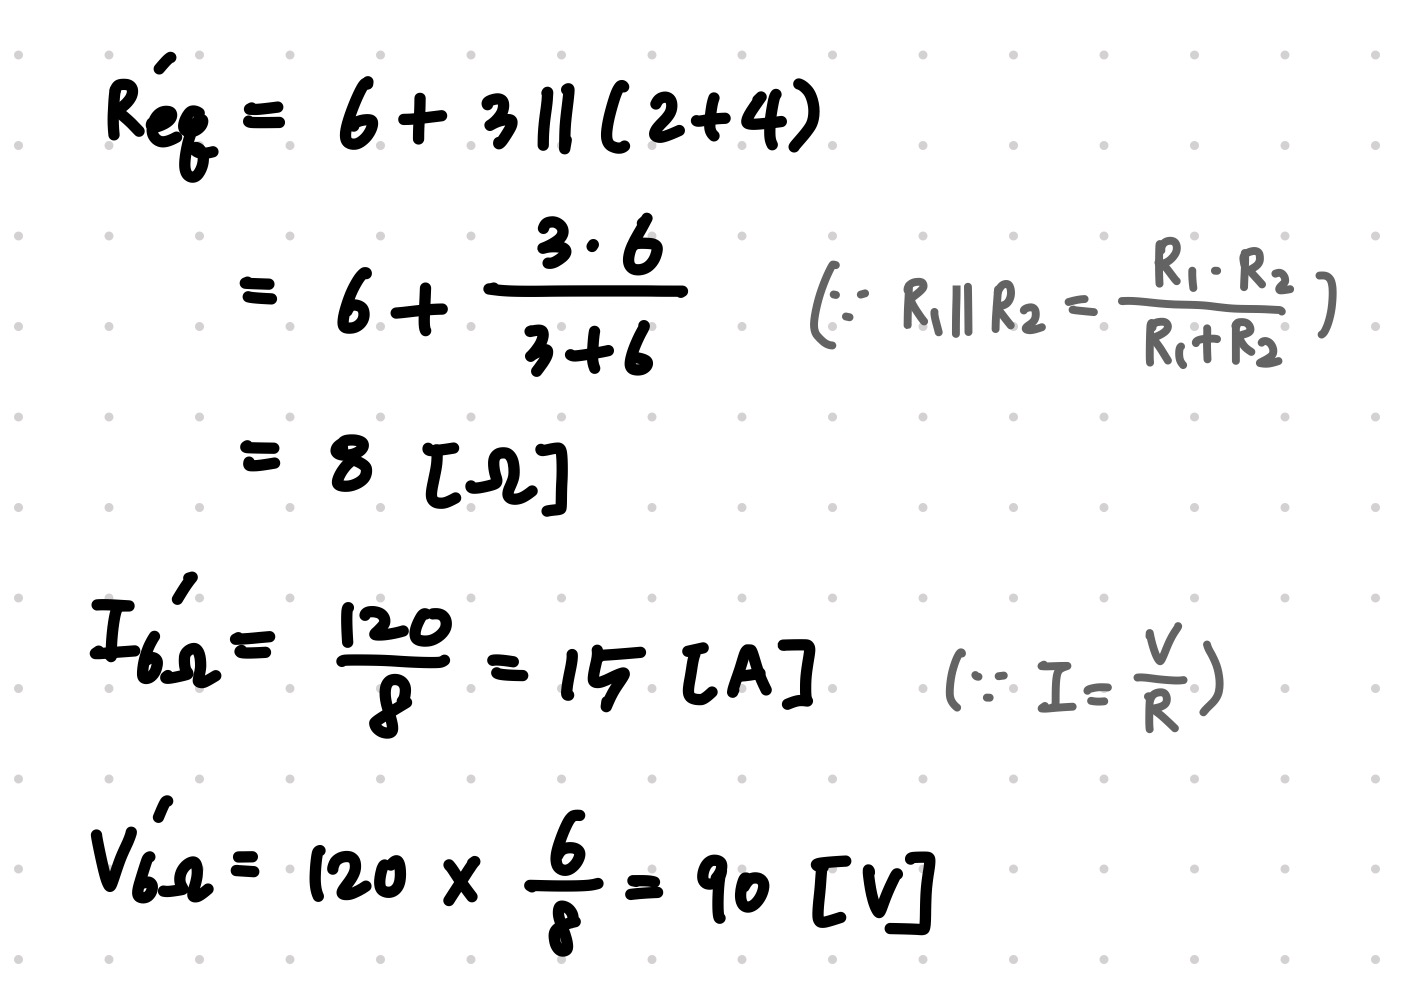 R'eq = 6 + 3 || (2+4)
= 6 + (3·6)/(3+6) (∵ R₁||R₂ = (R₁·R₂)/(R₁+R₂))
= 8 [Ω]
I'6Ω = 120/8 = 15 [A] (∵ I = V/R)
V'6Ω = 120 × 6/8 = 90 [V]